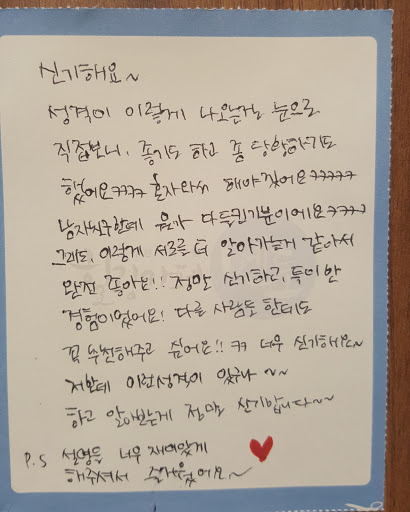 신기해요~
성격이 이렇게 나오는걸 눈으로
직접보니, 좋기도 하고 좀 당황하기도
했어요ㅋㅋㅋㅋ 혼자와서 해야겠어요ㅋㅋㅋㅋㅋ
남자친구한테 뭔가 다들킨기분이에요ㅋㅋㅋㅋ
그래도, 이렇게 서로를 더 알아가는게 같아서
완전 좋아요!! 정말 신기하고, 특이한
경험이었어요! 다른 사람들 한테도
꼭 추천해주고 싶어요!! ㅋㅋ 너무 신기해요~
저한테 이런성격이 있구나 ~~
하고 알아보는게 정말 신기합니다~~
P.S 설명을 너무 재미있게
해주셔서 즐거웠어요~